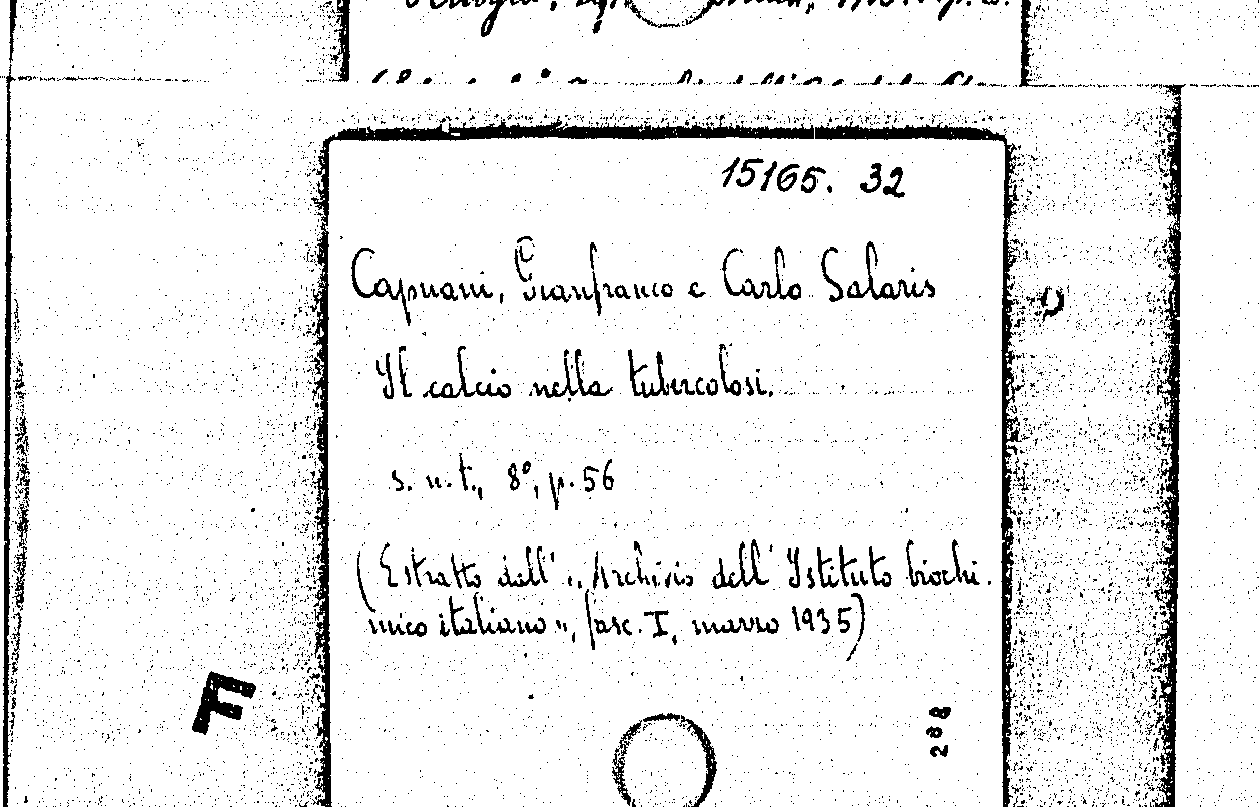 15165. 32
Capuani, Gianfranco e Carlo Salaris
Il calcio nella tubercolosi.
s. n. t., 8º, p. 56
(Estratto dall' „Archivio dell' Istituto biochi-
mico italiano", fasc. I, marzo 1935)
F
288